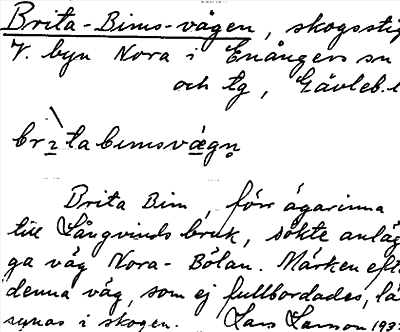 Brita-Bims-vägen, skogsstig
V. byn Nora i Enångers sn
och tg, Gävleb. l
britabimsvägn
Brita Bim, förr ägarinna
till Långvinds bruk, sökte anläg
ga väg Nora-Bölan. Märken efte
denna väg, som ej fullbordades, lä
synas i skogen. Lars Larson 193